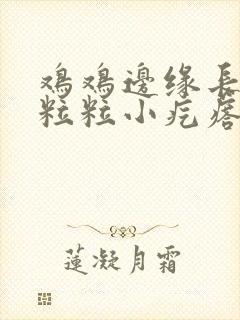 鸡鸡邊缘長
粒粒小疙瘩
蓮凝月霜